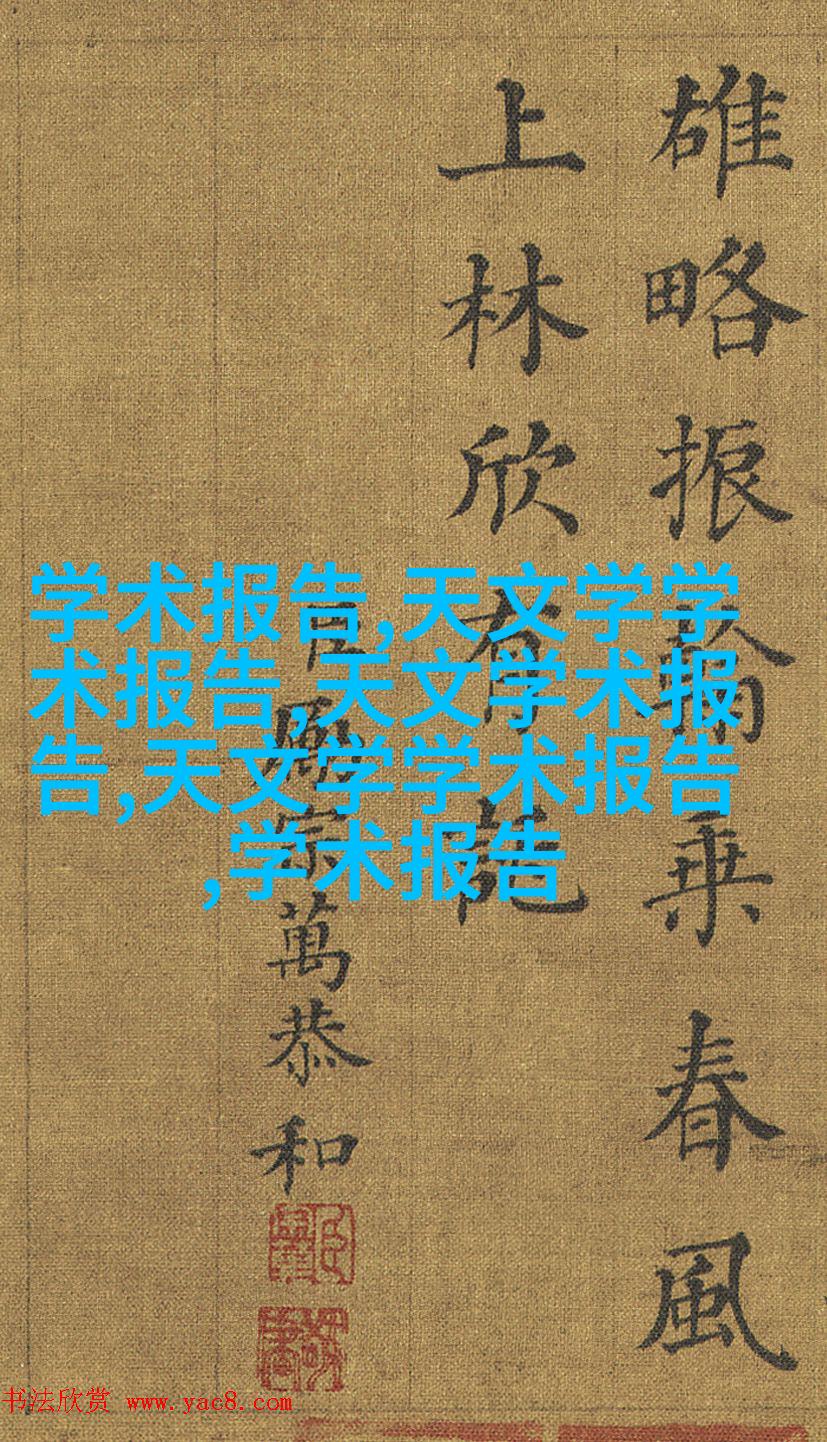 雄略振翰乘春風
上林欣有託
臣鳳宗萬恭和
学术报告,天文学学
术报告,天文学术报
告,天文学学术报告
,学术报告
书法欣赏 www.yac8.com